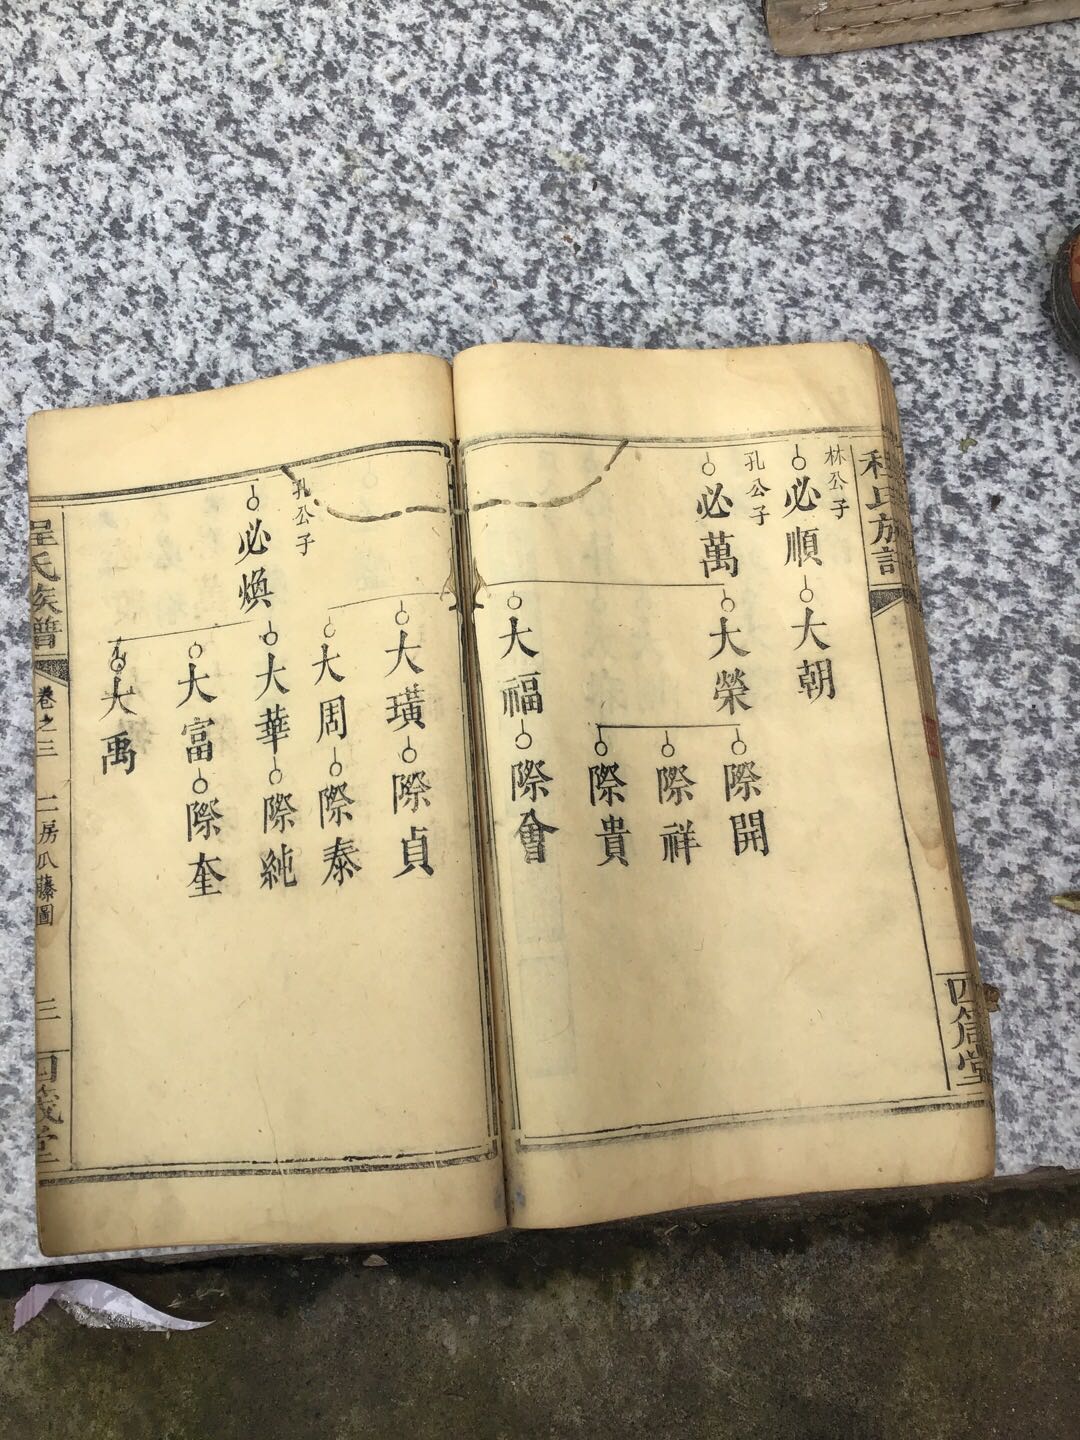 程氏族譜
四箴堂
林公子
必順
大朝
孔公子
必萬
大榮
際開
際祥
際貴
大福
際會
大璜
際貞
大周
際泰
孔公子
必煥
大華
際純
大富
際奎
大禹
程氏族譜
卷之三
二房瓜藤圖
三
四箴堂